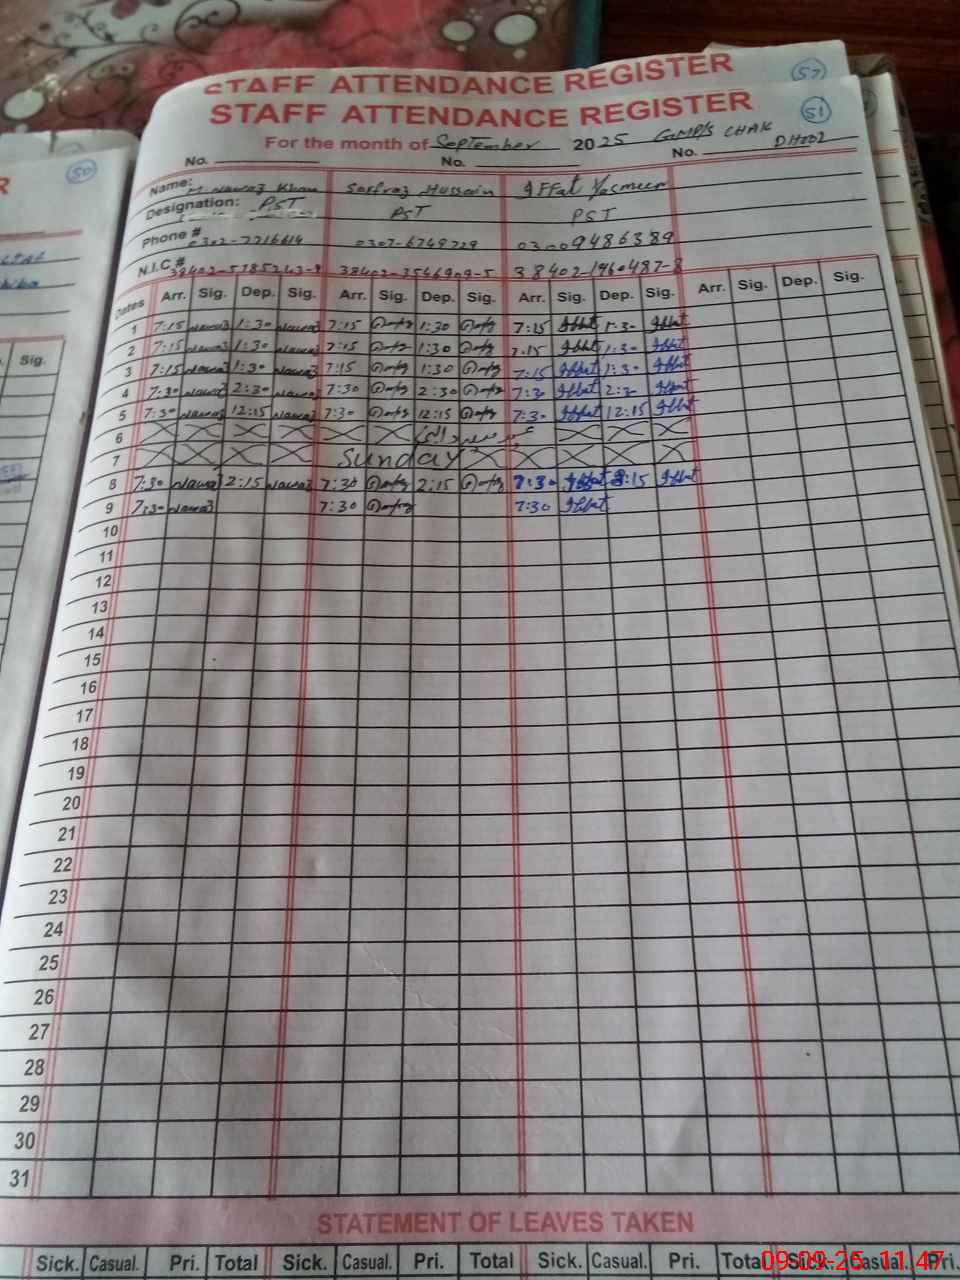 STAFF ATTENDANCE REGISTER 52
STAFF ATTENDANCE REGISTER 51
For the month of September 2025 GMP/S CHAK
No. No. No. DHOO2
50
R
Name: M Nawaz Khan Sarfraz Hussain Iffat Yasmeen
Designation: PST PST PST
Phone # 0302-7716614 0307-6749729 03009486389
N.I.C # 38402-5785243-9 38402-3546909-5 38402-1960487-8
Dates Arr. Sig. Dep. Sig. Arr. Sig. Dep. Sig. Arr. Sig. Dep. Sig. Arr. Sig. Dep. Sig.
Sig.
1 7:15 Nawaz 1:30 Nawaz 7:15 1:30 7:15 Iffat 1:30 Iffat
2 7:15 Nawaz 1:30 Nawaz 7:15 1:30 7:15 Iffat 1:30 Iffat
3 7:15 Nawaz 1:30 Nawaz 7:15 1:30 7:15 Iffat 1:30 Iffat
4 7:30 Nawaz 2:30 Nawaz 7:30 2:30 7:30 Iffat 2:30 Iffat
5 7:30 Nawaz 12:15 Nawaz 7:30 12:15 7:30 Iffat 12:15 Iffat
6
7 Sunday
8 7:30 Nawaz 2:15 Nawaz 7:30 2:15 7:30 Iffat 2:15 Iffat
9 7:30 Nawaz 7:30 7:30 Iffat
10
11
12
13
14
15
16
17
18
19
20
21
22
23
24
25
26
27
28
29
30
31
STATEMENT OF LEAVES TAKEN
Sick. Casual. Pri. Total Sick. Casual. Pri. Total Sick. Casual. Pri. Total Sick. Casual. Pri.
09-09-25 11:47